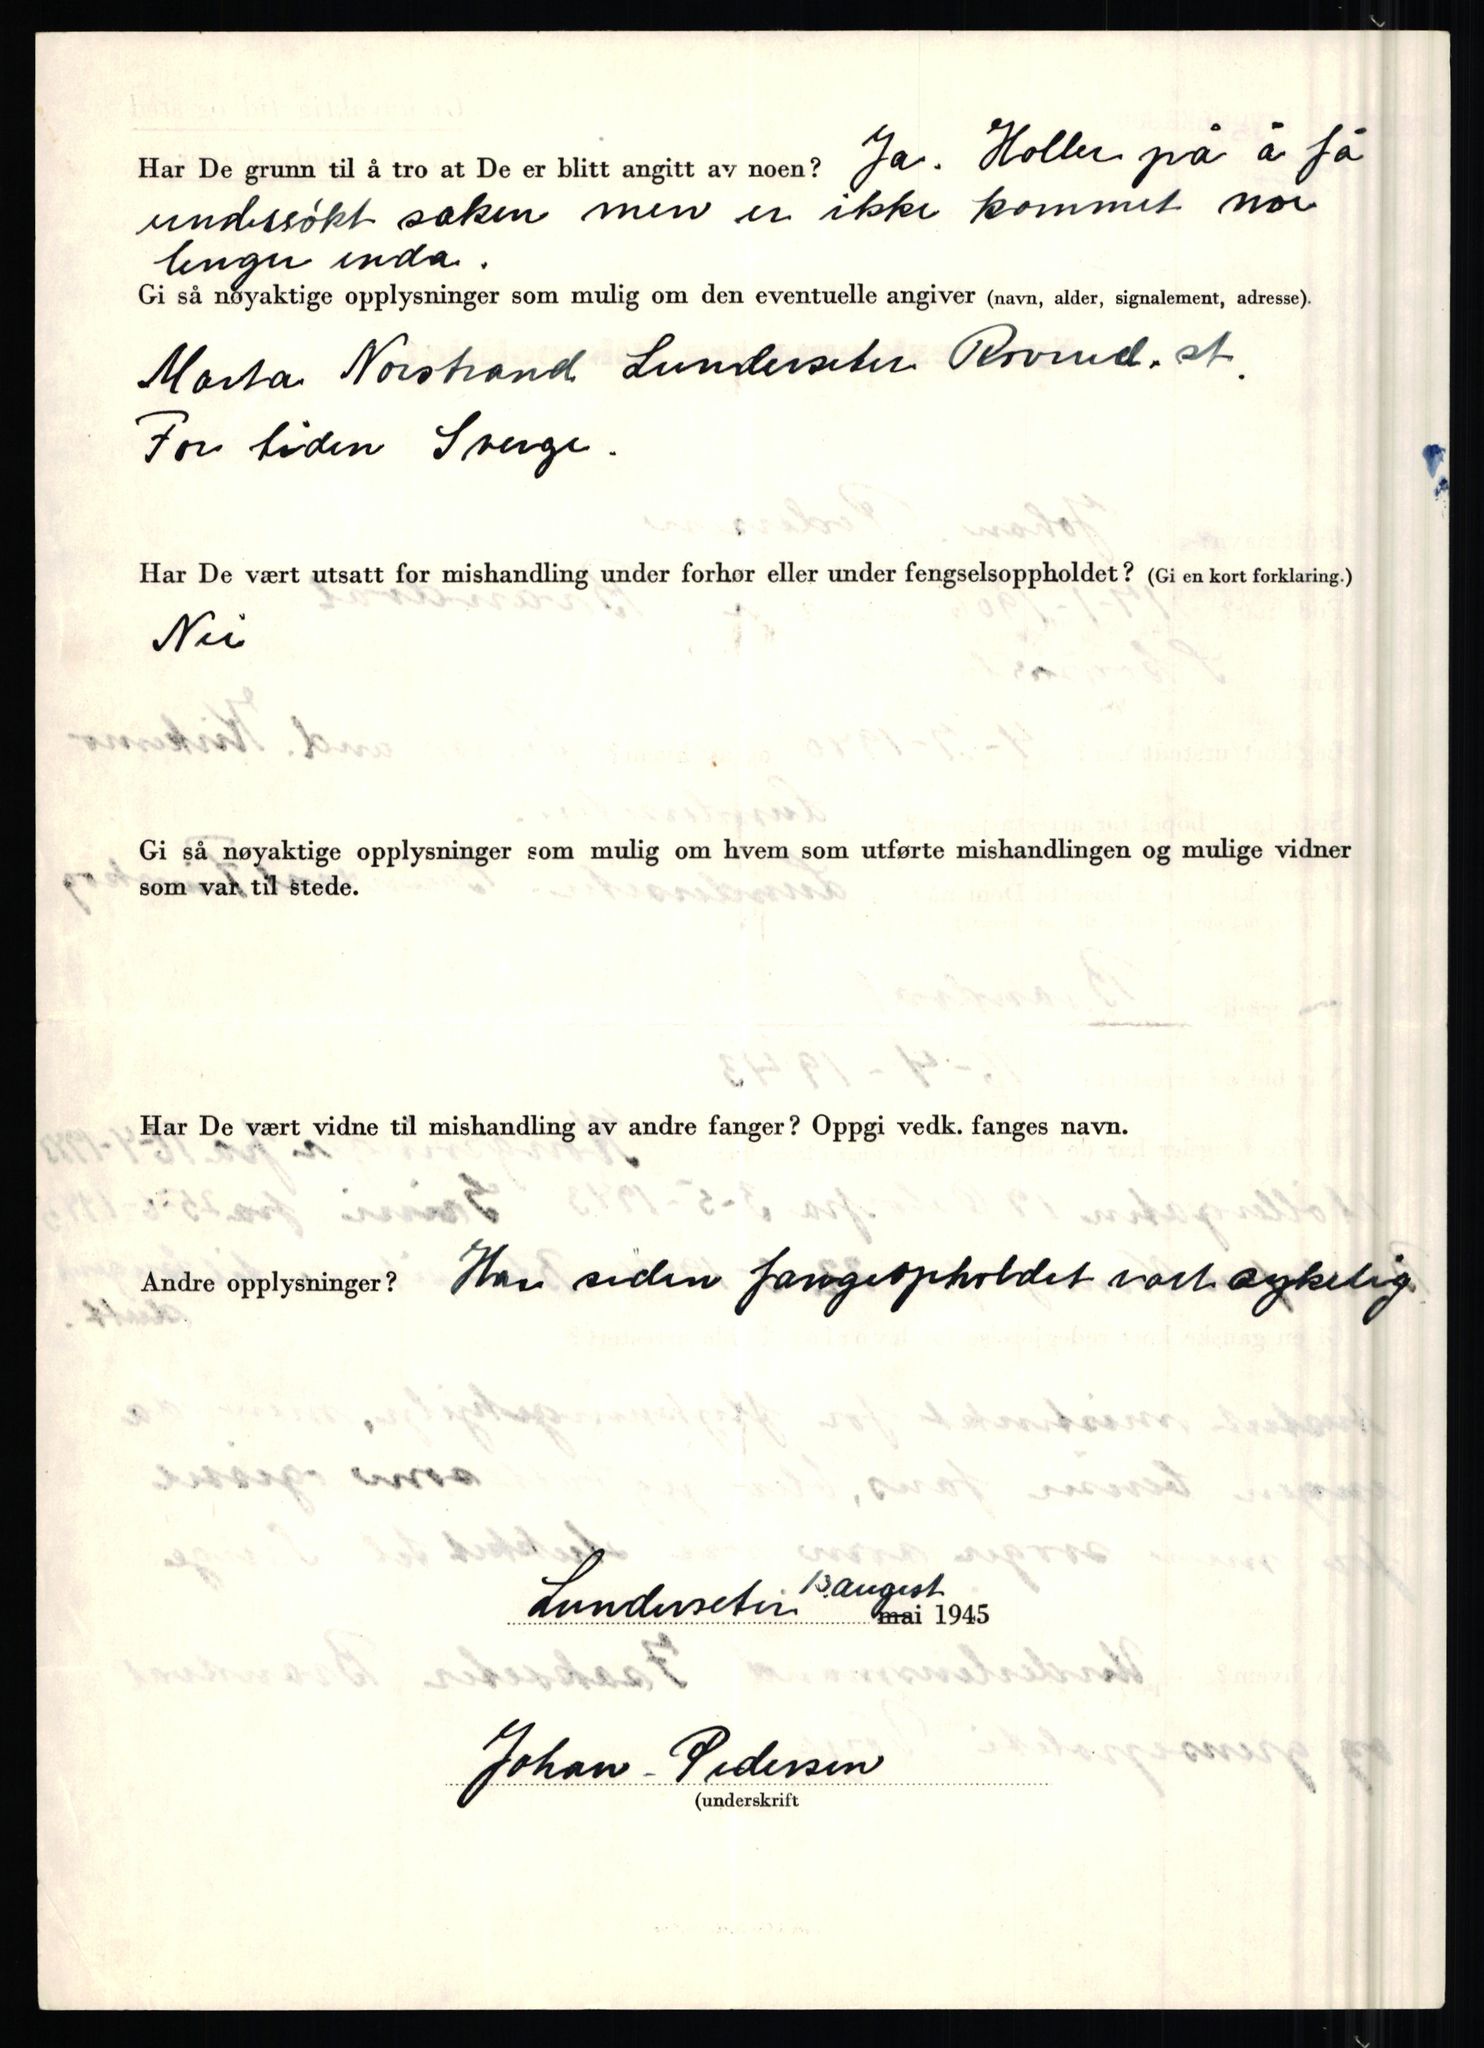 Har De grunn til å tro at De er blitt angitt av noen? Ja. Holler på å få
undersökt saken men er ikke kommet noe
lenger enda.
Gi så nøyaktige opplysninger som mulig om den eventuelle angiver (navn, alder, signalement, adresse).
Marta Norstrand Lunderseter Roverud. st.
For tiden Sverge.
Har De vært utsatt for mishandling under forhør eller under fengselsoppholdet? (Gi en kort forklaring.)
Nei
Gi så nøyaktige opplysninger som mulig om hvem som utførte mishandlingen og mulige vidner
som var til stede.
Har De vært vidne til mishandling av andre fanger? Oppgi vedk. fanges navn.
Andre opplysninger? Har siden fangeopholdet vært sykelig
Lunderseter 13. august mai 1945
Johan Pedersen
(underskrift